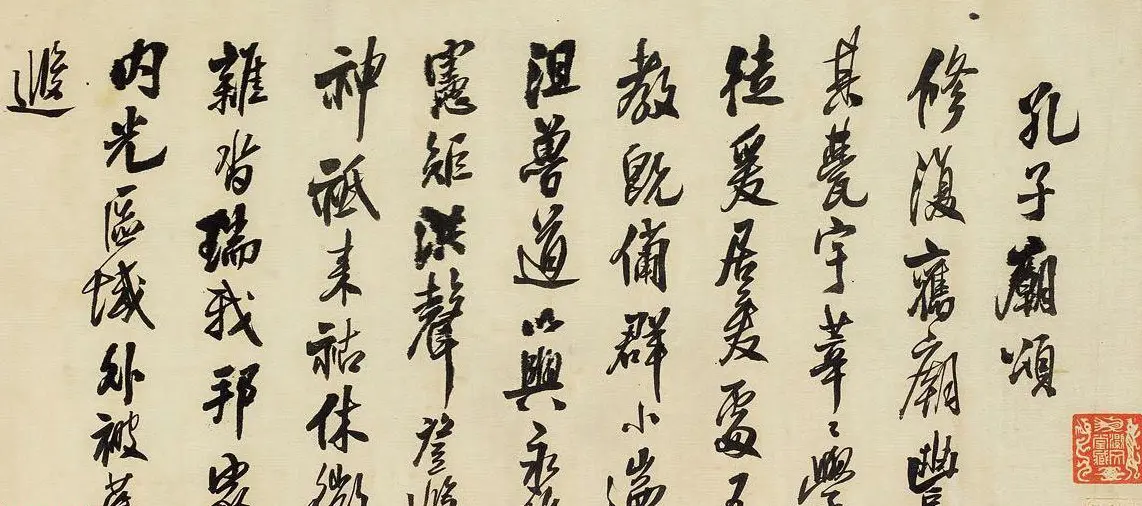 孔子廟頌
修復舊廟豐
其甍宇莘〻學
徒爰居爰處王
教既備群小遄
沮魯道以興永作
憲矩洪聲登遐
神祇來祜休徵
雜沓瑞我邦家
內光區域外被荒
遐